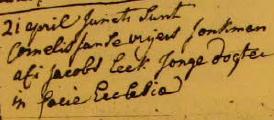 21 april Juncti sunt
Cornelis Janse vryers Jonkman
afi Jacobs Eeck Jonge dogter
in facie Ecclesia